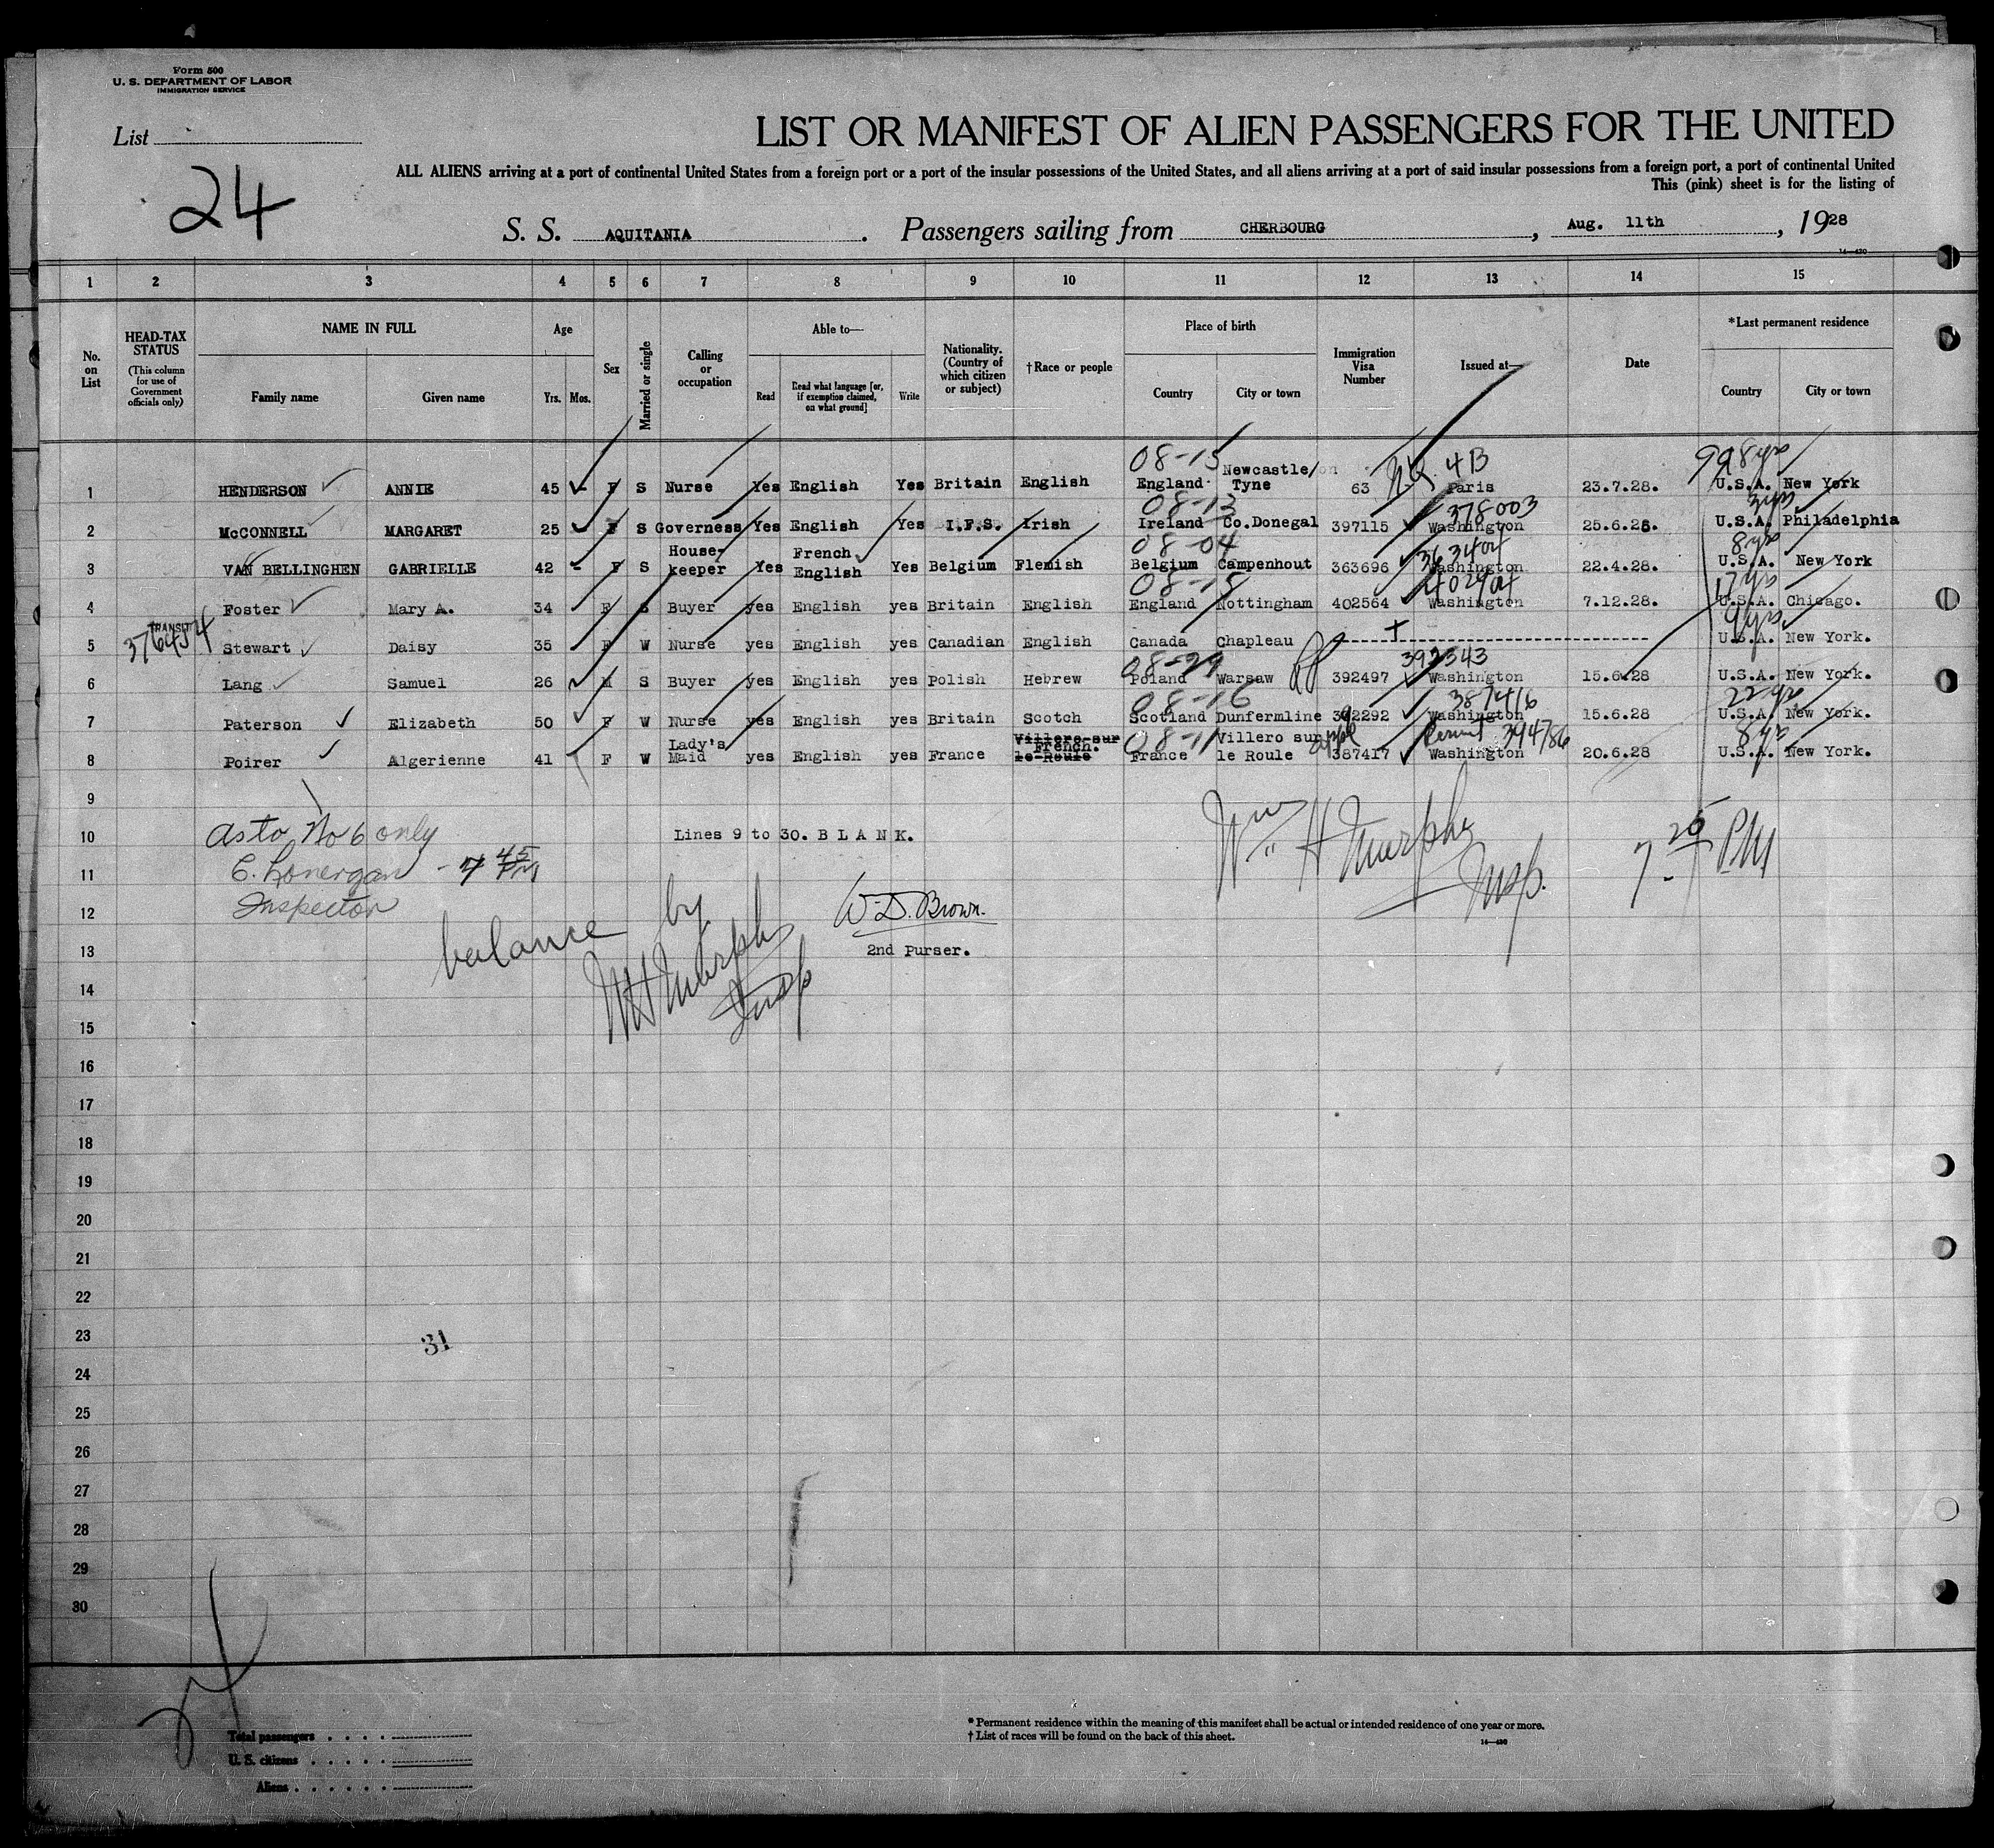 Form 500
U. S. DEPARTMENT OF LABOR
IMMIGRATION SERVICE
List
24
LIST OR MANIFEST OF ALIEN PASSENGERS FOR THE UNITED
ALL ALIENS arriving at a port of continental United States from a foreign port or a port of the insular possessions of the United States, and all aliens arriving at a port of said insular possessions from a foreign port, a port of continental United
This (pink) sheet is for the listing of
S. S. AQUITANIA. Passengers sailing from CHERBOURG, Aug. 11th, 1928
14—430
1 2 3 4 5 6 7 8 9 10 11 12 13 14 15
No. on List
HEAD-TAX STATUS (This column for use of Government officials only)
NAME IN FULL
Family name Given name
Age
Yrs. Mos.
Sex
Married or single
Calling or occupation
Able to—
Read Read what language [or, if exemption claimed, on what ground] Write
Nationality. (Country of which citizen or subject)
†Race or people
Place of birth
Country City or town
Immigration Visa Number
Issued at—
Date
*Last permanent residence
Country City or town
08-15 4B 8yrs
1 HENDERSON ANNIE 45 - F S Nurse Yes English Yes Britain English England Newcastle/on Tyne 63 Paris 23.7.28. U.S.A. New York
08-13 378003 3yrs
2 McCONNELL MARGARET 25 F S Governess Yes English Yes I.F.S. Irish Ireland Co.Donegal 397115 Washington 25.6.28. U.S.A. Philadelphia
08-04 363404 8yrs
3 VAN BELLINGHEN GABRIELLE 42 - F S House-keeper Yes French English Yes Belgium Flemish Belgium Campenhout 363696 Washington 22.4.28. U.S.A. New York
08-15 402404 7yrs
4 Foster Mary A. 34 F S Buyer yes English yes Britain English England Nottingham 402564 Washington 7.12.28. U.S.A. Chicago.
TRANSIT 376454 9yrs
5 Stewart Daisy 35 F W Nurse yes English yes Canadian English Canada Chapleau U.S.A. New York.
08-29 392343
6 Lang Samuel 26 M S Buyer yes English yes Polish Hebrew Poland Warsaw 392497 Washington 15.6.28 U.S.A. New York.
08-16 387416 22yrs
7 Paterson Elizabeth 50 F W Nurse yes English yes Britain Scotch Scotland Dunfermline 392292 Washington 15.6.28 U.S.A. New York.
08-11 Permit 394786 8yrs
8 Poirer Algerienne 41 F W Lady's Maid yes English yes France Villero-sur le-Roule French. France Villero sur le Roule appl 387417 Washington 20.6.28 U.S.A. New York.
9
10 as to No 6 only Lines 9 to 30. B L A N K. Wm H Murphy 7 25 PM
11 C. Lonergan - 7 45 PM Insp.
12 Inspector W. D. Brown.
balance by
13 2nd Purser.
W H Murphy
14 Insp
15
16
17
18
19
20
21
22
23 31
24
25
26
27
28
29
30
24
Total passengers
U. S. citizens
Aliens
* Permanent residence within the meaning of this manifest shall be actual or intended residence of one year or more.
† List of races will be found on the back of this sheet.
14—430